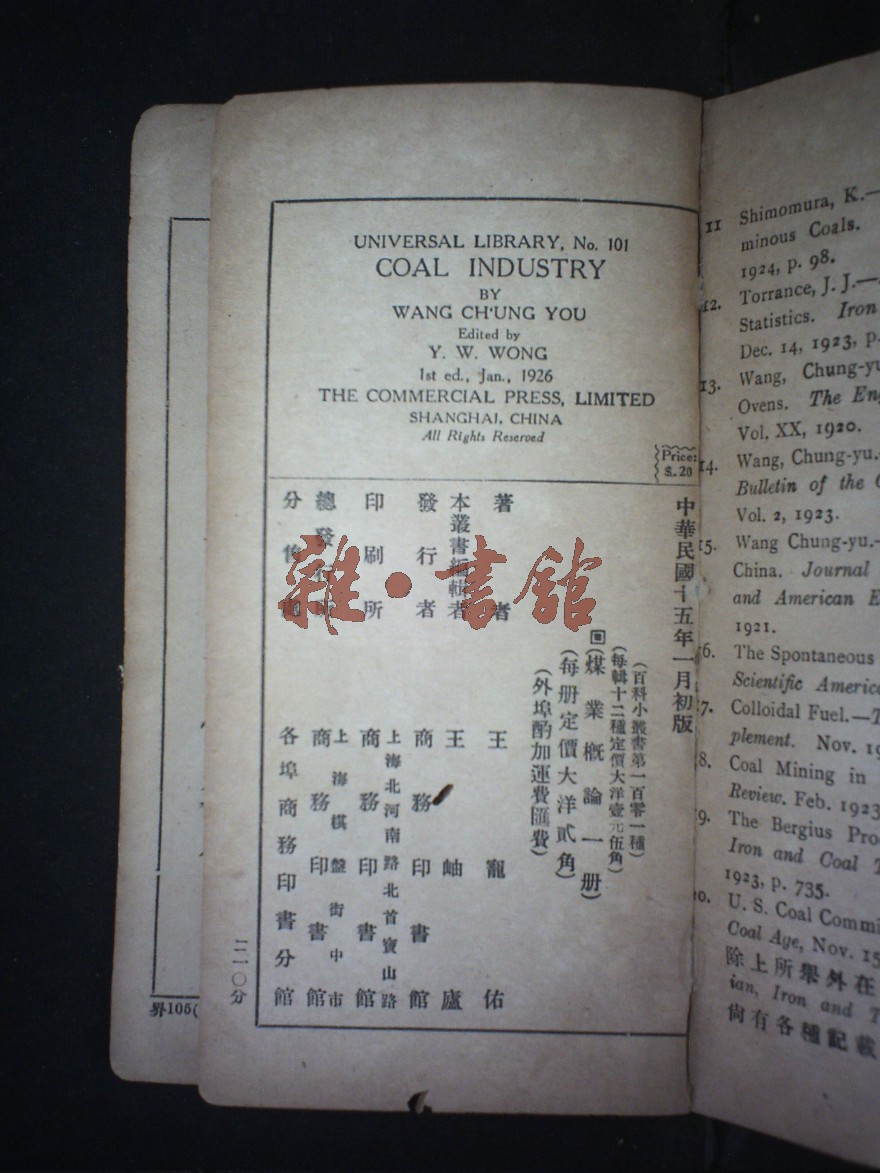 UNIVERSAL LIBRARY, No. 101
COAL INDUSTRY
BY
WANG CH'UNG YOU
Edited by
Y. W. WONG
1st ed., Jan., 1926
THE COMMERCIAL PRESS, LIMITED
SHANGHAI, CHINA
All Rights Reserved
Price:
$.20
中華民國十五年一月初版
(百科小叢書第一百零一種)
(每輯十二種定價大洋壹元伍角)
(煤業概論一册)
(每册定價大洋貳角)
(外埠酌加運費匯費)
著者 王寵佑
本叢書編輯者 王岫廬
發行者 商務印書館
印刷所 上海北河南路北首寶山路 商務印書館
總發行所 上海棋盤街中市 商務印書館
分售處 各埠商務印書分館
二一〇分
雜·書館
界105(
11 Shimomura, K.—
minous Coals.
1924, p. 98.
12. Torrance, J. J.—
Statistics. Iron
Dec. 14, 1923, p.
13. Wang, Chung-yu
Ovens. The Eng
Vol. XX, 1920.
14. Wang, Chung-yu.
Bulletin of the
Vol. 2, 1923.
15. Wang Chung-yu.—
China. Journal
and American E
1921.
16. The Spontaneous
Scientific America
17. Colloidal Fuel.—
plement. Nov. 19
18. Coal Mining in
Review. Feb. 1923
19. The Bergius Pro
Iron and Coal T
1923, p. 735.
20. U. S. Coal Commi
Coal Age, Nov. 15
除上所舉外在
ian, Iron and T
尙有各種記載